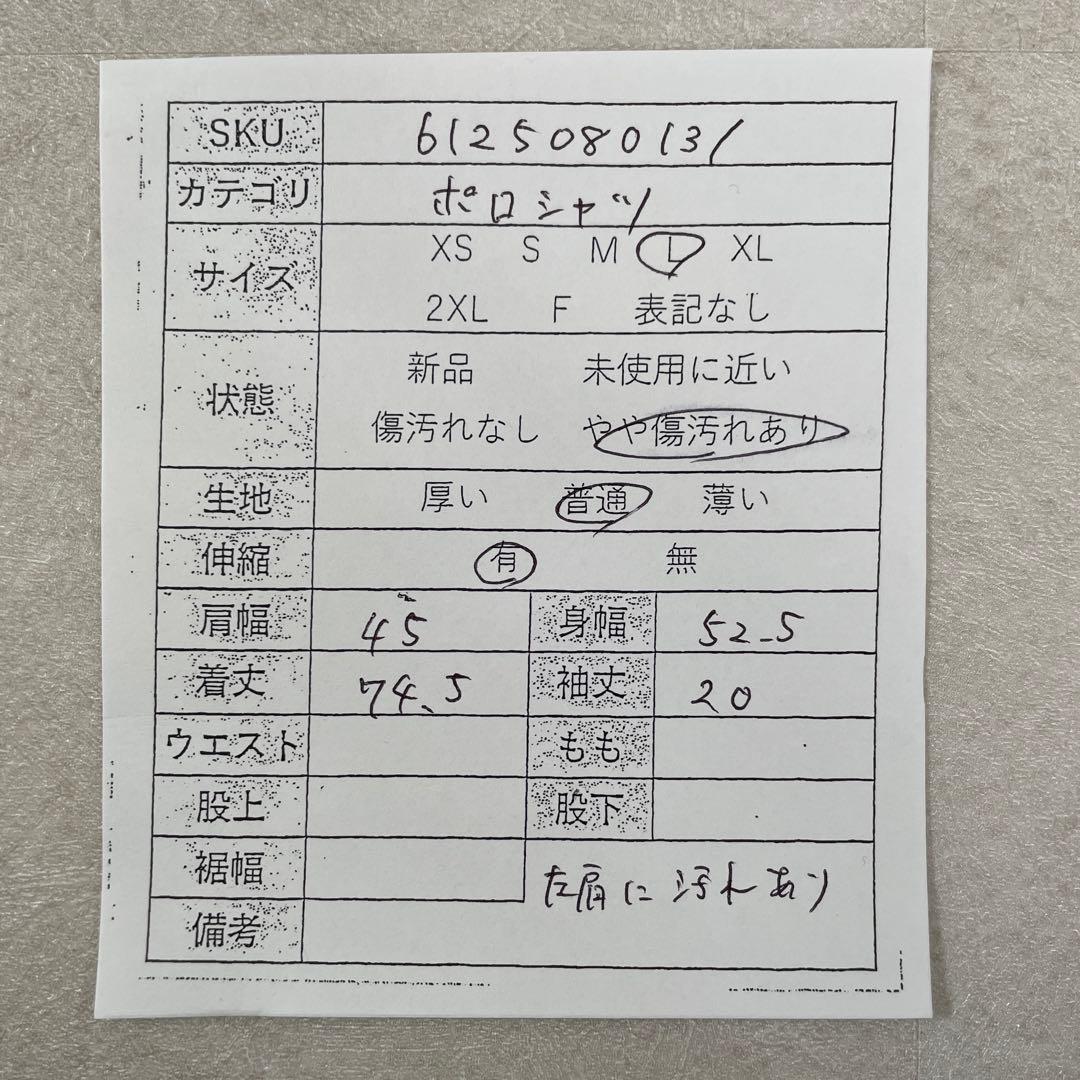 SKU 6125080131
カテゴリ ポロシャツ
サイズ XS S M L XL
2XL F 表記なし
状態 新品 未使用に近い
傷汚れなし やや傷汚れあり
生地 厚い 普通 薄い
伸縮 有 無
肩幅 45 身幅 52.5
着丈 74.5 袖丈 20
ウエスト もも
股上 股下
裾幅 左肩に汚れあり
備考